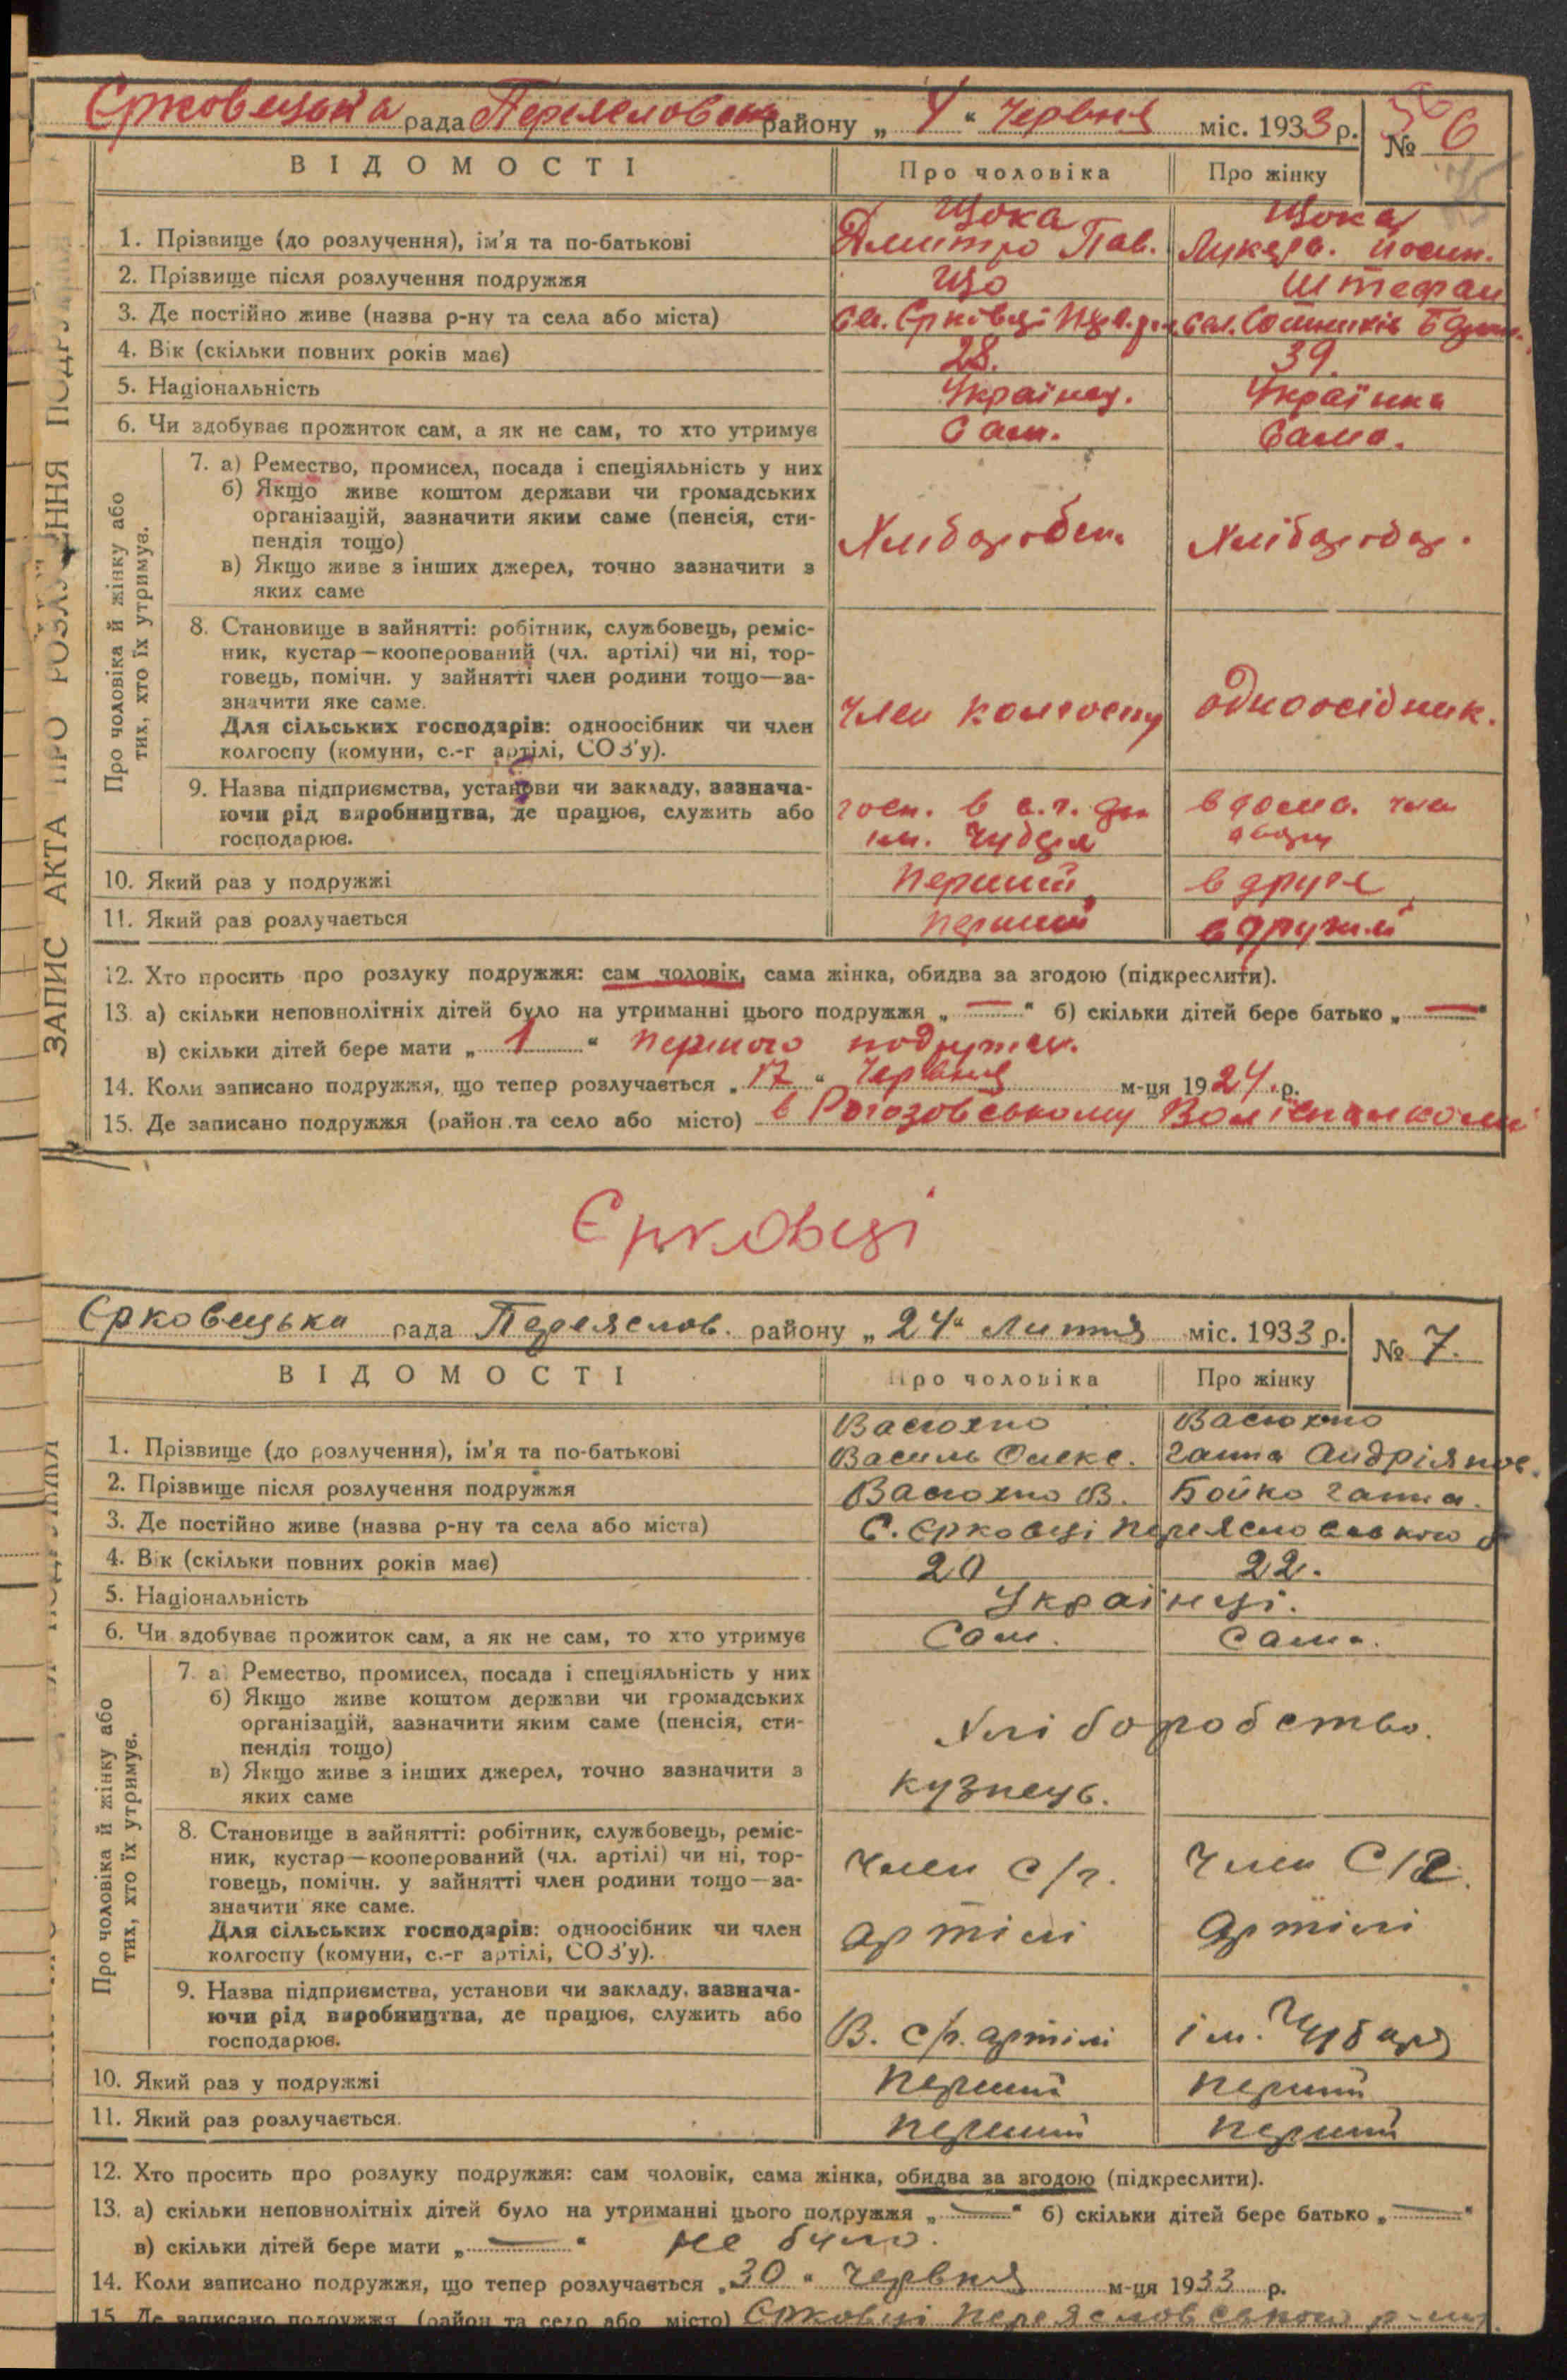 Єрковецька рада Переяславськ району „ 4 “ Червня міс. 1933 р. № 6
56
ВІДОМОСТІ Про чоловіка Про жінку
Щока Щока
1. Прізвище (до розлучення), ім'я та по-батькові Дмитро Пав. Лукер. Йосип.
2. Прізвище після розлучення подружжя Що Штефан
3. Де постійно живе (назва р-ну та села або міста) сел. Єрківці сел. Сошників
4. Вік (скільки повних років має) 28. 39.
5. Національність Українец. Українка
6. Чи здобуває прожиток сам, а як не сам, то хто утримує Сам. Сама.
Про чоловіка й жінку або тих, хто їх утримує.
7. а) Ремество, промисел, посада і спеціяльність у них
б) Якщо живе коштом держави чи громадських
організацій, зазначити яким саме (пенсія, сти-
пендія тощо) Хліборобст. Хлібороб.
в) Якщо живе з інших джерел, точно зазначити з
яких саме
8. Становище в зайнятті: робітник, службовець, реміс-
ник, кустар—кооперований (чл. артілі) чи ні, тор-
говець, помічн. у зайнятті член родини тощо—за-
значити яке саме. член колгоспу одноосідник.
Для сільських господарів: одноосібник чи член
колгоспу (комуни, с.-г артілі, СОЗ'у).
9. Назва підприємства, установи чи закладу, зазнача-
ючи рід виробництва, де працює, служить або госп. в с.г.
господарює. ім. Чубаря
10. Який раз у подружжі перший в друге
11. Який раз розлучається перший в другий
12. Хто просить про розлуку подружжя: сам чоловік, сама жінка, обидва за згодою (підкреслити).
13. а) скільки неповнолітніх дітей було на утриманні цього подружжя „ — “ б) скільки дітей бере батько „ — “
в) скільки дітей бере мати „ 1 “ першого подружж.
14. Коли записано подружжя, що тепер розлучається „ 17 “ Червня м-ця 1924 р.
15. Де записано подружжя (район та село або місто) в Рогозовському Волвиконкомі
ЗАПИС АКТА ПРО РОЗЛУЧЕННЯ ПОДРУЖЖЯ
Єрковці
Єрковецька рада Переяслов. району „ 24 “ Лютня міс. 1933 р. № 7.
ВІДОМОСТІ Про чоловіка Про жінку
Васюхно Васюхно
1. Прізвище (до розлучення), ім'я та по-батькові Василь Олекс. Ганна Андріянов.
2. Прізвище після розлучення подружжя Васюхно В. Бойко Ганна.
3. Де постійно живе (назва р-ну та села або міста) С. Єрковці Переясловського
4. Вік (скільки повних років має) 20 22.
5. Національність Українці.
6. Чи здобуває прожиток сам, а як не сам, то хто утримує Сам. Сама.
Про чоловіка й жінку або тих, хто їх утримує.
7. а) Ремество, промисел, посада і спеціяльність у них
б) Якщо живе коштом держави чи громадських
організацій, зазначити яким саме (пенсія, сти- Хліборобство.
пендія тощо)
в) Якщо живе з інших джерел, точно зазначити з кузнець.
яких саме
8. Становище в зайнятті: робітник, службовець, реміс-
ник, кустар—кооперований (чл. артілі) чи ні, тор- член с/г. член С/г.
говець, помічн. у зайнятті член родини тощо—за-
значити яке саме.
Для сільських господарів: одноосібник чи член артілі артілі
колгоспу (комуни, с.-г артілі, СОЗ'у).
9. Назва підприємства, установи чи закладу, зазнача-
ючи рід виробництва, де працює, служить або В. с/г. артілі ім. Чубаря
господарює.
10. Який раз у подружжі перший перший
11. Який раз розлучається. перший перший
12. Хто просить про розлуку подружжя: сам чоловік, сама жінка, обидва за згодою (підкреслити).
13. а) скільки неповнолітніх дітей було на утриманні цього подружжя „ — “ б) скільки дітей бере батько „ — “
в) скільки дітей бере мати „ — “ не було.
14. Коли записано подружжя, що тепер розлучається „ 30 “ червня м-ця 1933 р.
15. Де записано подружжя (район та село або місто) Єрковці Переясловського р-ну